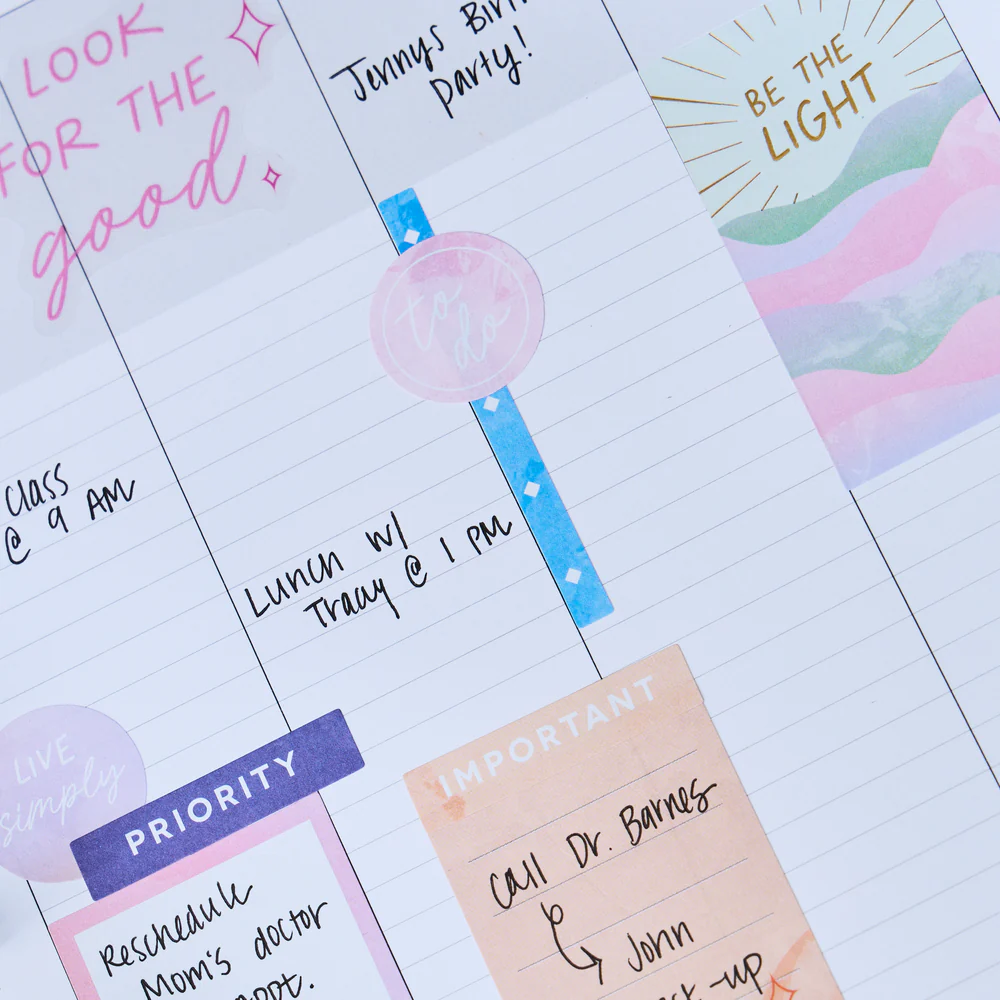 LOOK
FOR THE
good
Jennys
party!
BE THE
LIGHT
to
do
class
@ 9 AM
Lunch w/
Tracy @ 1 PM
LIVE
simply
PRIORITY
Reschedule
Mom's doctor
IMPORTANT
call Dr. Barnes
John